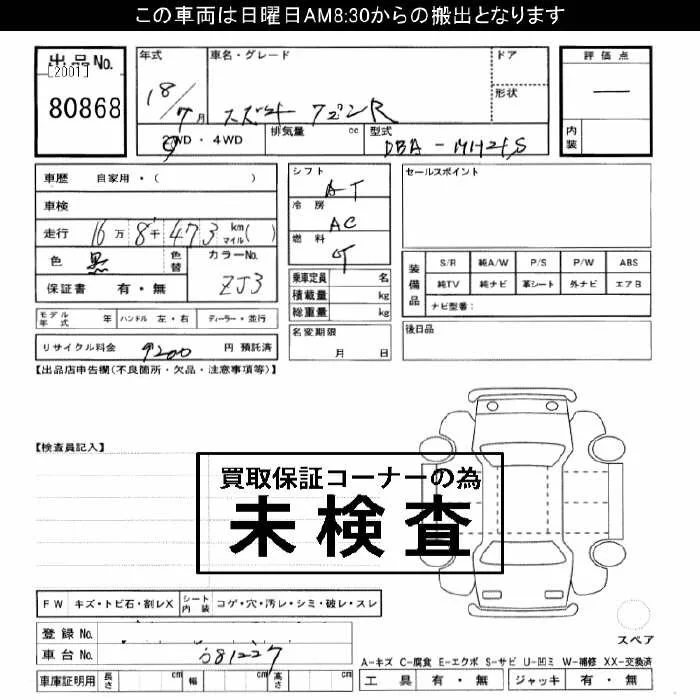 この車両は日曜日AM8:30からの搬出となります
出品No.
[2001]
80868
年式
18/7月
車名・グレード
スズキ ワゴンR
ドア
形状
評価点
—
内装
2WD・4WD
排気量 cc
型式
DBA-MH21S
車歴 自家用・( )
車検
走行 16万8千473 km マイル( )
色 黒 色替
カラーNo.
ZJ3
保証書 有・無
モデル年式 年 ハンドル 左・右 ディーラー・並行
リサイクル料金 9200 円 預託済
シフト
AT
冷房
AC
燃料
乗車定員 名
積載量 kg
総重量 kg
名変期限
月 日
セールスポイント
装備品
S/R 純A/W P/S P/W ABS
純TV 純ナビ 革シート 外ナビ エアB
ナビ型番:
後日品
【出品店申告欄(不良箇所・欠品・注意事項等)】
【検査員記入】
買取保証コーナーの為
未検査
FW キズ・トビ石・割レX シート内装 コゲ・穴・汚レ・シミ・破レ・スレ
登録No.
車台No. 681227
車庫証明用 長さ cm 幅 cm 高さ cm
スペア
A-キズ C-腐食 E-エクボ S-サビ U-凹ミ W-補修 XX-交換済
工具 有・無 ジャッキ 有・無